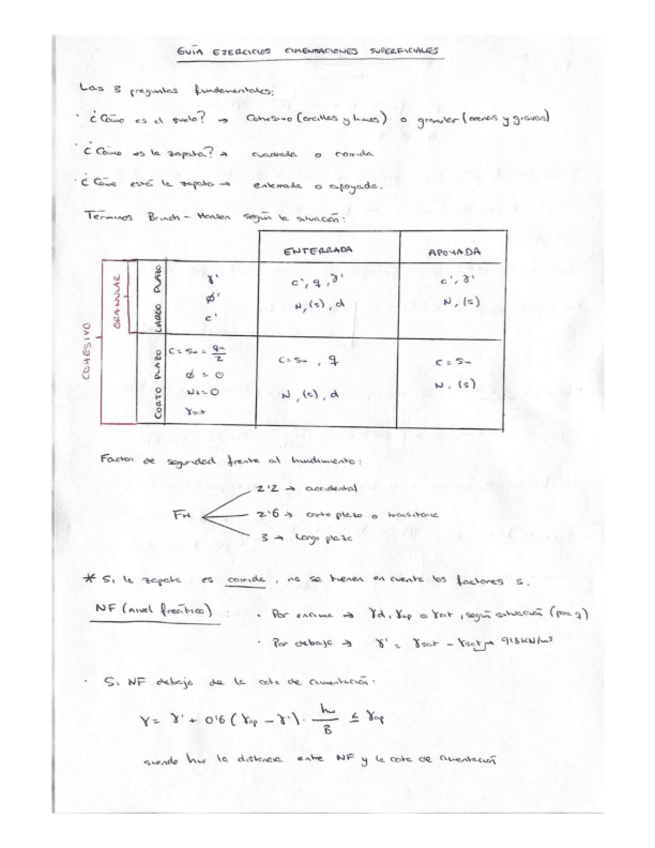 GUÍA EJERCICIOS CIMENTACIONES SUPERFICIALES
Las 3 preguntas fundamentales:
· ¿Cómo es el suelo? → Cohesivo (arcillas y limos) o granular (arenas y gravas)
· ¿Cómo es la zapata? → cuadrada o corrida
· ¿Cómo está la zapata → enterrada o apoyada.
Términos Brinch-Hansen según la situación:
ENTERRADA APOYADA
COHESIVO
GRANULAR
LARGO PLAZO
γ'
ϕ'
c'
c', q, γ'
N, (s), d
c', γ'
N, (s)
CORTO PLAZO
C = Su = qu/2
ϕ = 0
Nγ = 0
γsat
C = Su, q
N, (s), d
C = Su
N, (s)
Factor de seguridad frente al hundimiento:
FH
2'2 → accidental
2'6 → corto plazo o transitoria
3 → Largo plazo
* Si la zapata es corrida, no se tienen en cuenta los factores s.
NF (nivel freático): · Por encima → γd, γap o γsat, según situación (para q)
· Por debajo → γ' = γsat -
· Si NF debajo de la cota de cimentación:
γ = γ' + 0'6 (γap - γ') · hw/B ≤ γap
siendo hw la distancia entre NF y la cota de cimentación